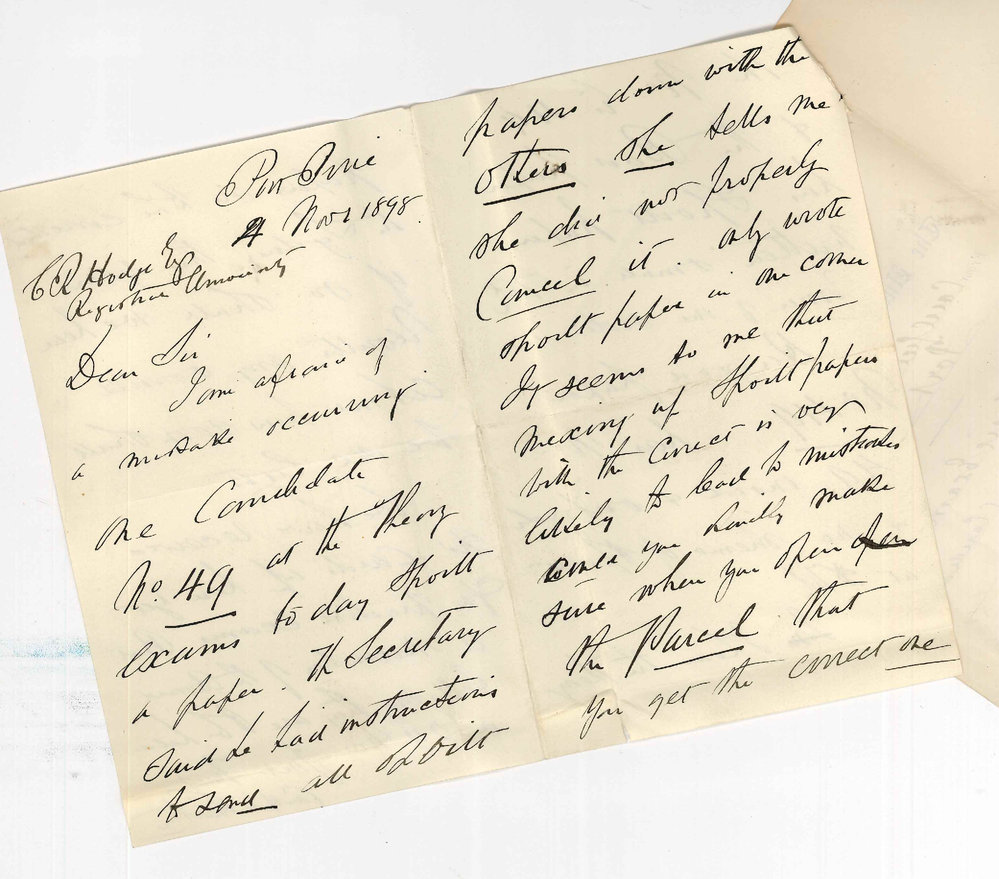 Port Pirie
4 Novr 1898
C R Hodge Esq
Registrar University
Dear Sir
I am afraid of
a mistake occurring
one Candidate
No. 49 at the Theory
exams to day spoilt
a paper. Th Secretary
said he had instructions
to send all spoilt
papers down with the
others she tells me
she did not properly
Cancel it. only wrote
spoilt paper in one corner
It seems to me that
mixing up spoilt papers
with the correct is very
likely to lead to mistakes
could you kindly make
sure when you open
the Parcel that
you get the correct one